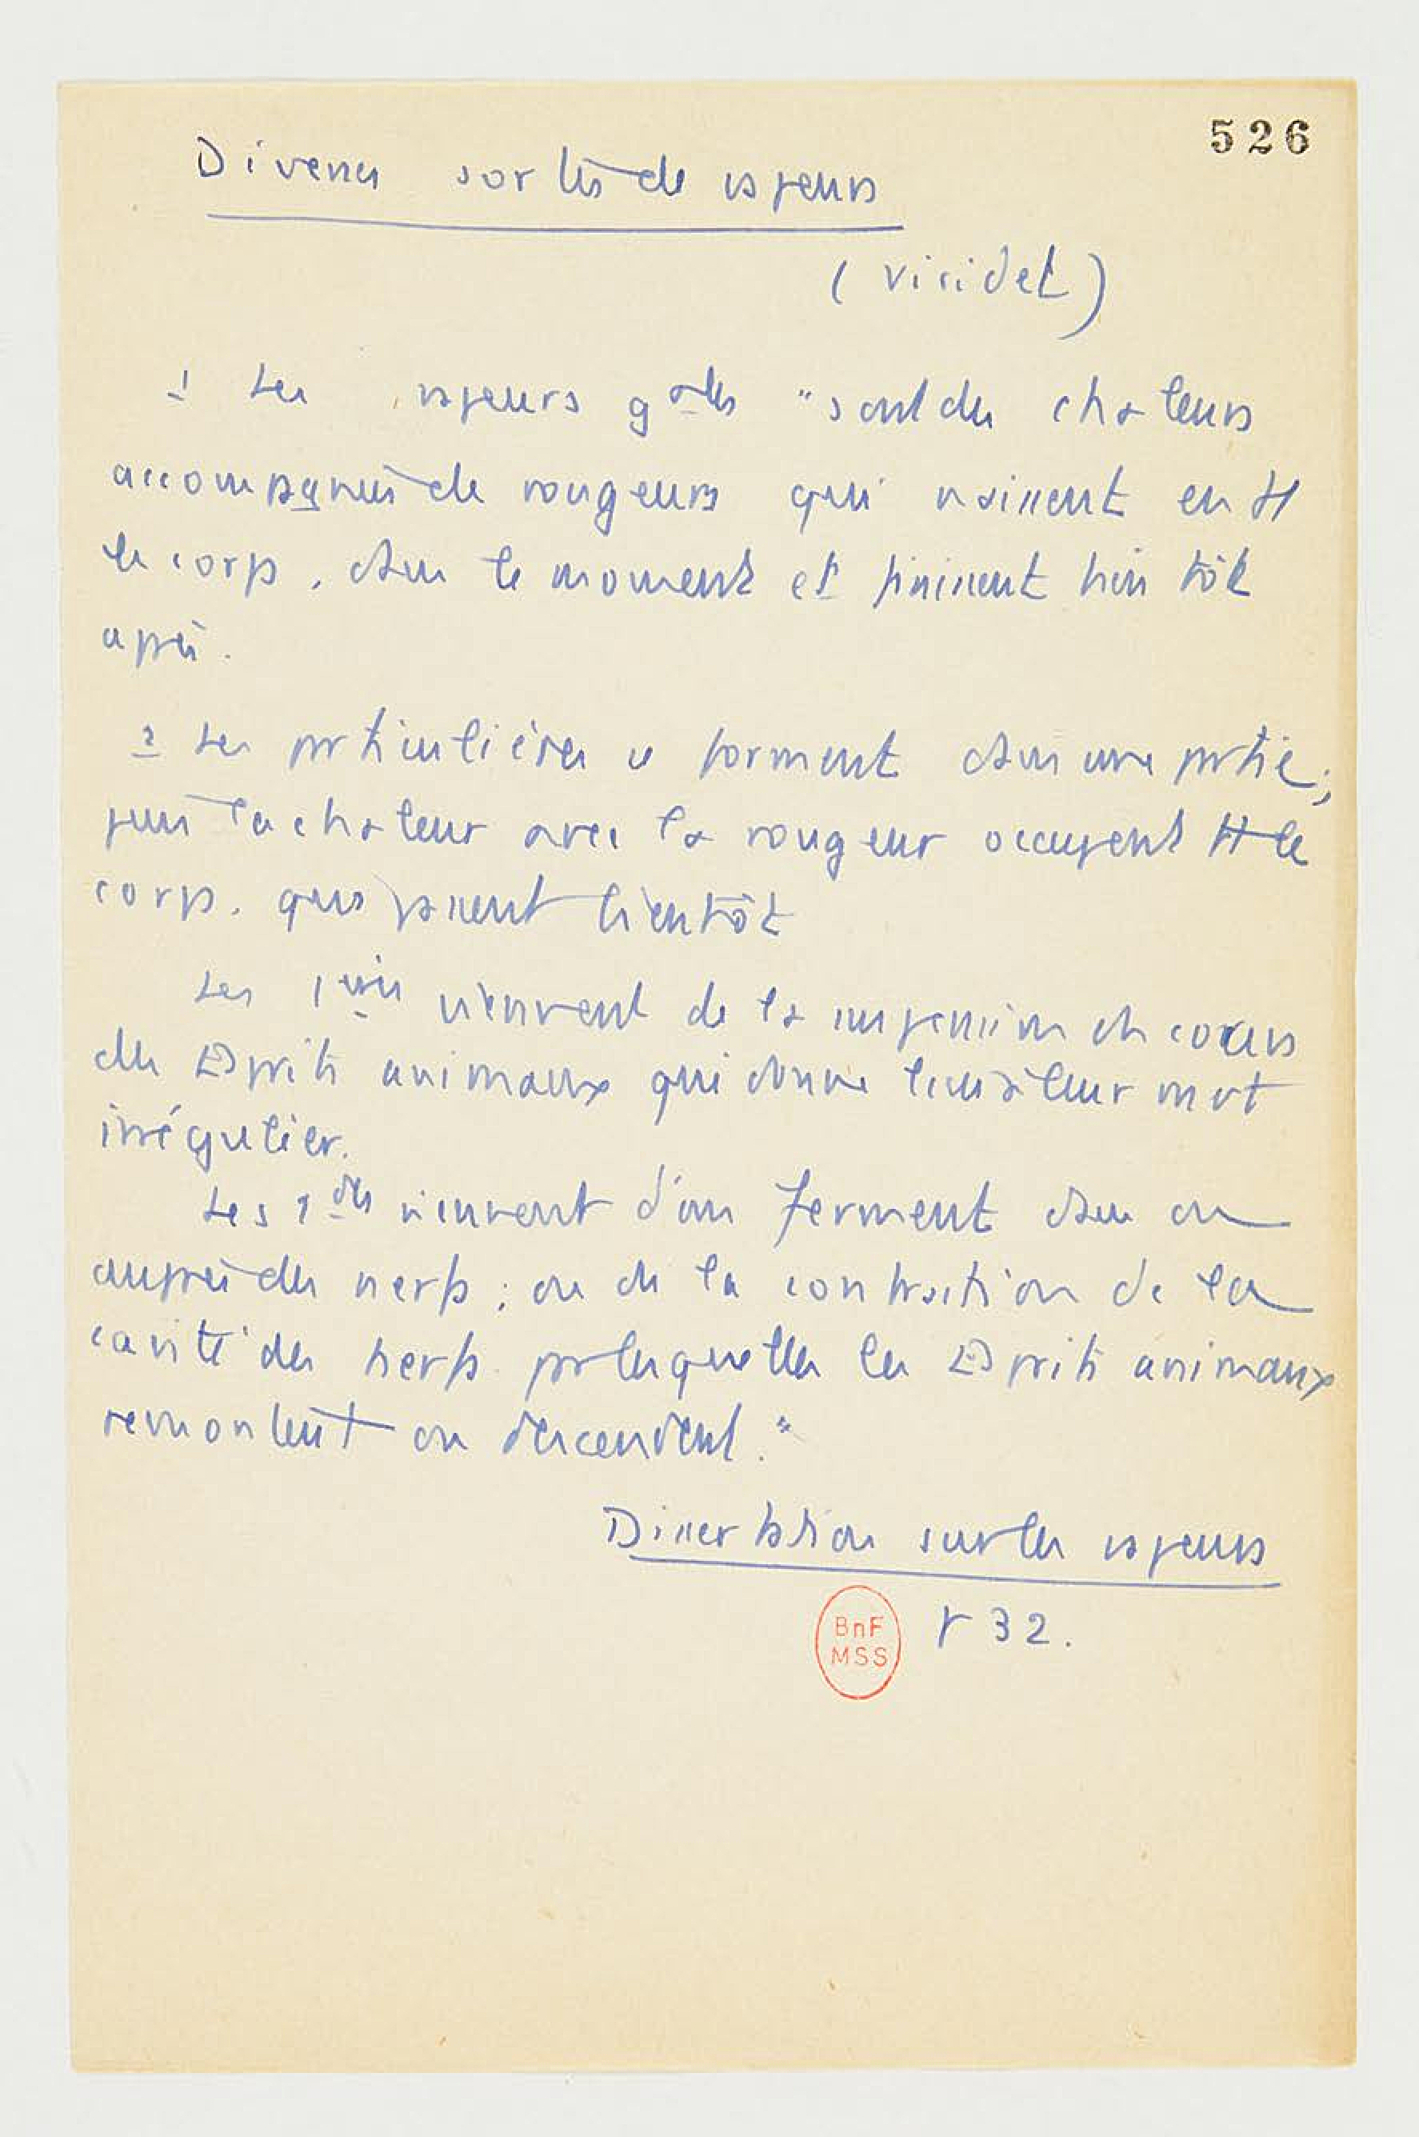 526
Diverses sortes de vapeurs
(Viridet)
1 Les vapeurs gales "sont des chaleurs
accompagnées de rougeurs qui naissent en tt
le corps, dans le moment et finissent bien tôt
après.
2 Les particulières se forment dans une partie ;
puis la chaleur avec la rougeur occupent tt le
corps. qui passent bientôt
Les 1ères viennent de la suspension du cours
des Esprits animaux qui donne lieu à leur mvt
irrégulier.
Les 2des viennent d'un ferment dans ou
auprès des nerfs ; ou de la contraction de la
cavité des nerfs par lesquelles les Esprits animaux
remontent ou descendent."
Dissertation sur les vapeurs
p 32.
BnF
MSS